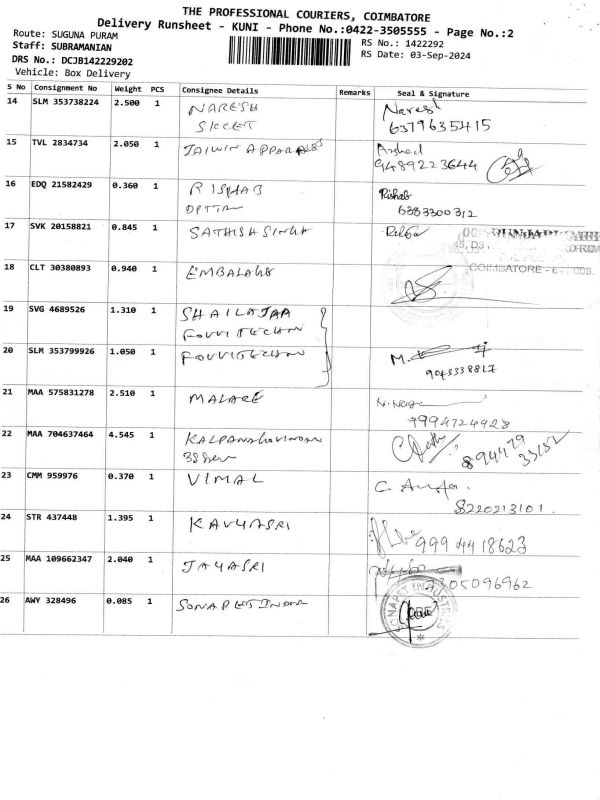 THE PROFESSIONAL COURIERS, COIMBATORE
Delivery Runsheet - KUNI - Phone No.:0422-3505555 - Page No.:2
Route: SUGUNA PURAM
RS No.: 1422292
Staff: SUBRAMANIAN
RS Date: 03-Sep-2024
DRS No.: DCJB142229202
Vehicle: Box Delivery
S No Consignment No Weight PCS Consignee Details Remarks Seal & Signature
14 SLM 353738224 2.500 1 NARESH Naresh
6379635415
15 TVL 2834734 2.050 1 JAIWIN APPARALS Arshad
9489223644
16 EDQ 21582429 0.360 1 RISHAB Rishab
6383300312
17 SVK 20158821 0.845 1 SATHISH SINGH
COIMBATORE - 008.
18 CLT 30380893 0.940 1 EMBALAGE
19 SVG 4689526 1.310 1 SHAILAJAA
FOUVITECHN
20 SLM 353799926 1.050 1 FOUVITECHN M.
9043338817
21 MAA 575831278 2.510 1 MALARE
9994724928
22 MAA 704637464 4.545 1 KALPANA GOVINDAN
89447933152
23 CMM 959976 0.370 1 VIMAL
8220213101.
24 STR 437448 1.395 1 KAVYASRI 9994418623
25 MAA 109662347 2.040 1 JAYASRI 9305096962
26 AWY 328496 0.085 1 SONAPET INDUS